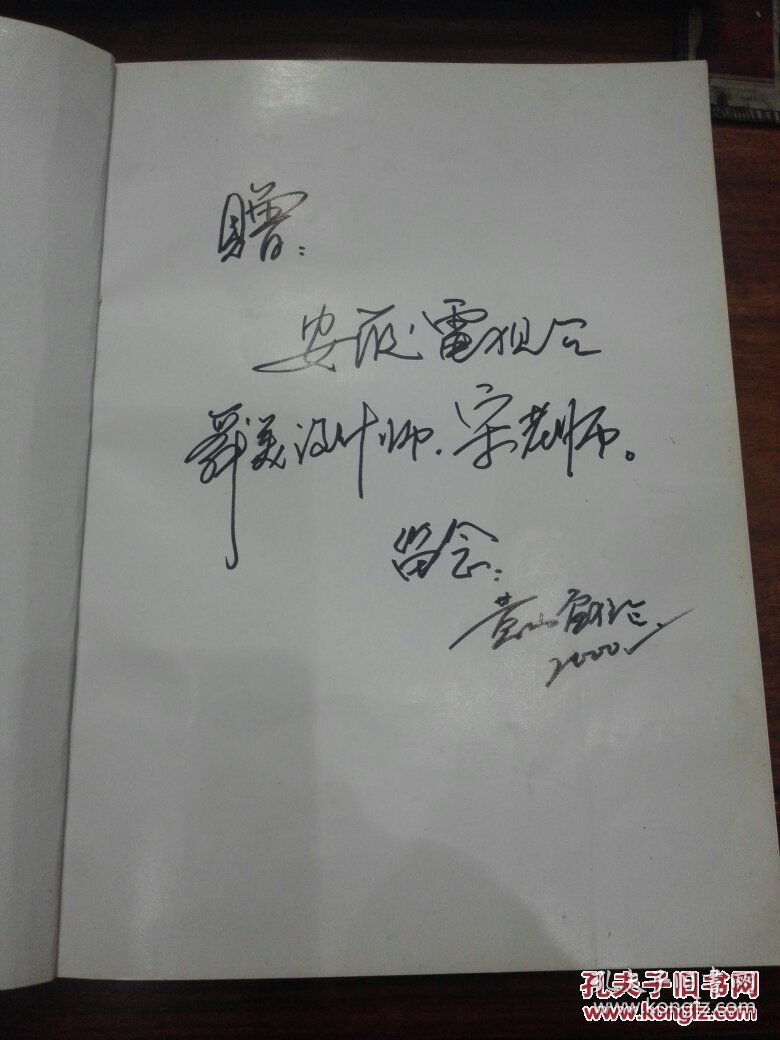 赠:
安徽电视台
舞美设计师、宋老师。
留念:
黄山
2000.
孔夫子旧书网
www.kongfz.com